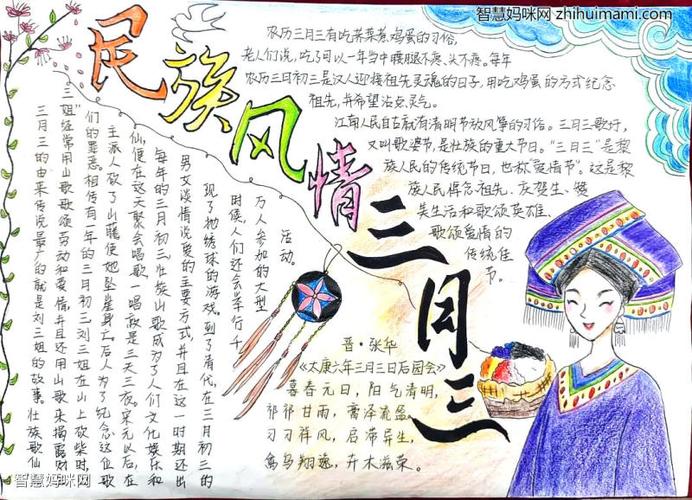 智慧妈咪网 zhihuimami.com
民族风情三月三
农历三月三有吃荠菜煮鸡蛋的习俗,
老人们说,吃了可以一年当中腰腿不疼、头不疼。每年
农历三月初三是汉人迎接祖先灵魂的日子,用吃鸡蛋的方式纪念
祖先,并希望沾点灵气。
江南人民自古就有清明节放风筝的习俗。三月三歌圩,
又叫歌婆节,是壮族的重大节日。"三月三"是黎
族人民的传统节日,也称"爱情节"。这是黎
族人民悼念祖先、庆贺生、赞
美生活和歌颂英雄、
歌颂爱情的
传统佳
节。
三月三的由来传说最广的就是刘三姐的故事。壮族歌仙
三姐经常用山歌歌颂劳动和爱情,并且还用山歌来揭露财
们的罪恶。相传有一年的三月初三刘三姐在山上砍柴时,
主派人砍了山藤使她坠崖身亡。后人为了纪念这位歌
仙,便在这天聚会唱歌,一唱就是三天三夜。宋元以后,在
每年的三月初三壮族山歌成为了人们文化娱乐和
男女谈情说爱的主要方式,并且在这一时期还出
现了抛绣球的游戏。到了清代,在三月初三的
时候,人们还会举行千
万人参加的大型
活动。
晋·张华
《太康六年三月三日后园会》
暮春元日,阳气清明,
祁祁甘雨,膏泽流盈。
习习祥风,启滞导生,
禽鸟翔逸,卉木滋荣。
智慧妈咪网